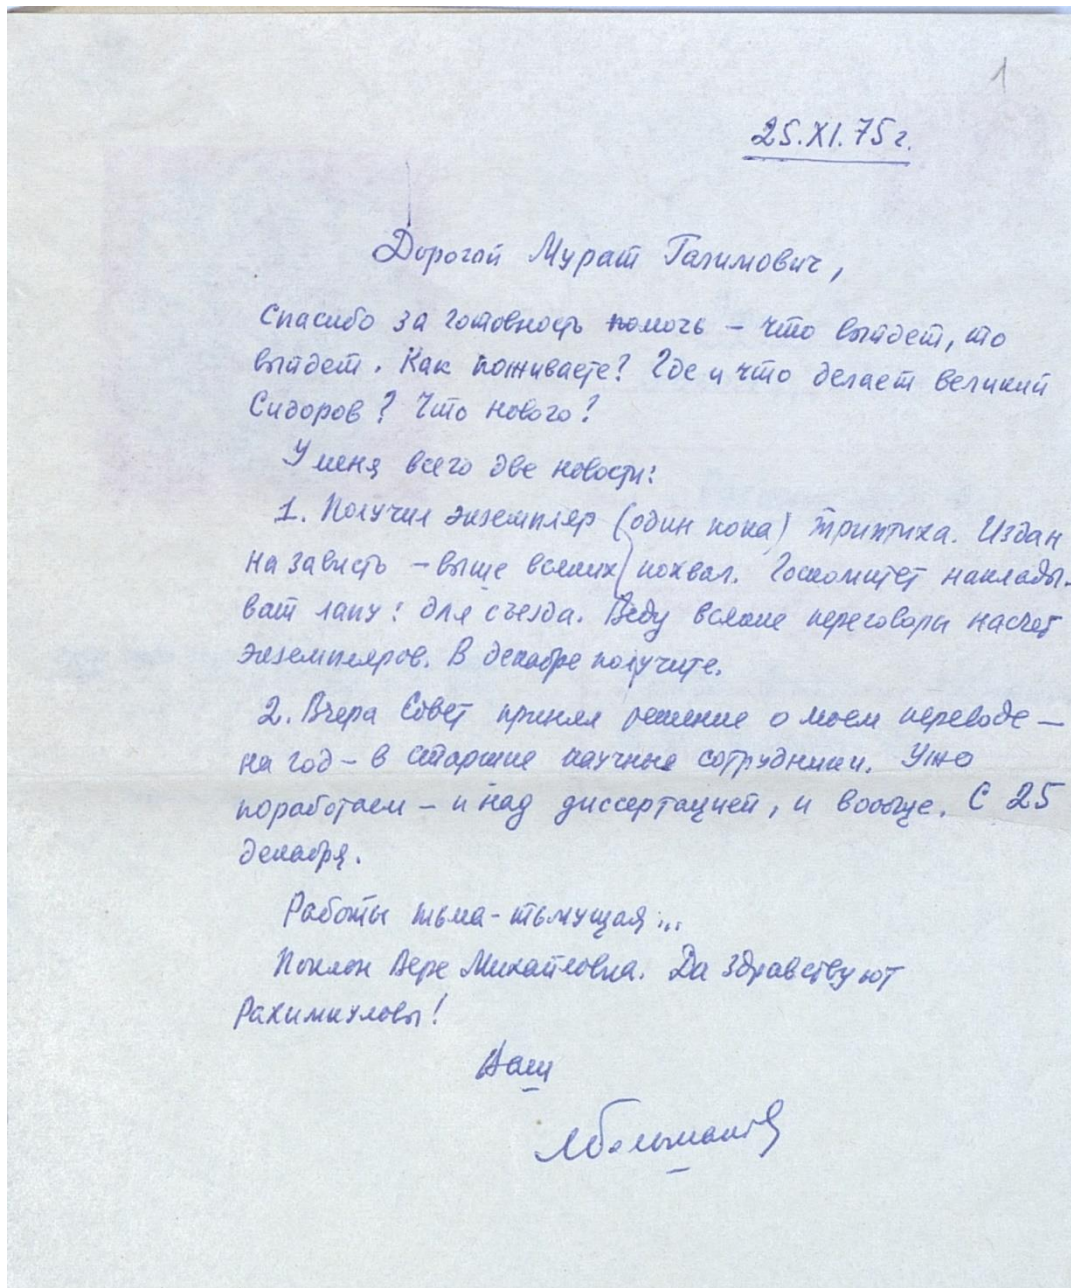 1
25.XI.75 г.
Дорогой Мурат Галимович,
Спасибо за готовность помочь – что выйдет, то
выйдет. Как поживаете? Где и что делает великий
Сидоров? Что нового?
У меня всего две новости:
1. Получил экземпляр (один пока) триптиха. Издан
на зависть – выше всяких похвал. Госкомитет наклады-
вает лапу: для съезда. Веду всякие переговоры насчет
экземпляров. В декабре получите.
2. Вчера Совет принял решение о моем переводе –
на год – в старшие научные сотрудники. Ужо
поработаем – и над диссертацией, и вообще. С 25
декабря.
Работы тьма-тьмущая...
Поклон Вере Михайловна. Да здравствуют
Рахимкуловы!
Ваш